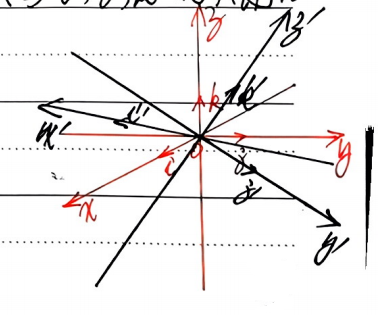 z
z'
k
k'
x'
i'
O
y
j
i
j'
x
y'